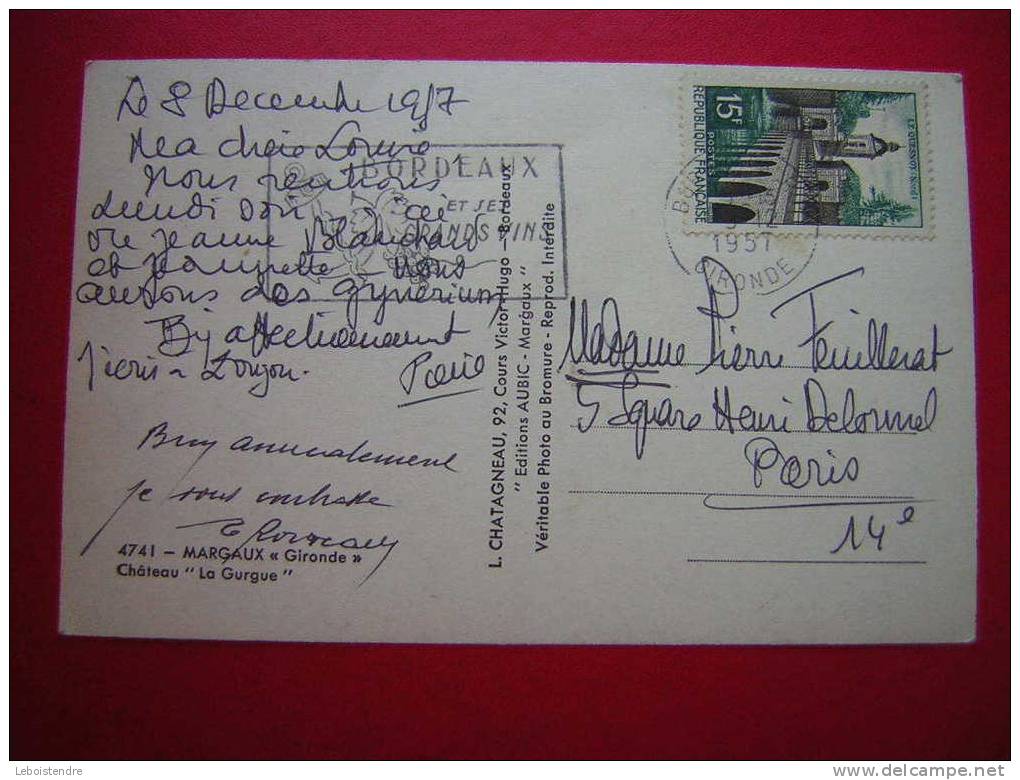 Le 8 Decembre 1957
Ma chère Louise
Nous rentrons
Lundi soir
Jeanne Blanchard
et
aurons des gyneriums
Bij affectionement
Pierre
Bien amicalement
je vous embrasse
BORDEAUX
ET SES
GRANDS VINS
4741 – MARGAUX « Gironde »
Château " La Gurgue "
L. CHATAGNEAU, 92, Cours Victor Hugo - Bordeaux
" Editions AUBIC - Margaux "
Véritable Photo au Bromure - Reprod. Interdite
15F
POSTES
REPUBLIQUE FRANÇAISE
LE QUESNOY (Nord)
1957
GIRONDE
Madame Pierre Feuillerat
5 Square Henri Delormel
Paris
14e
Leboistendre
delcampe.net